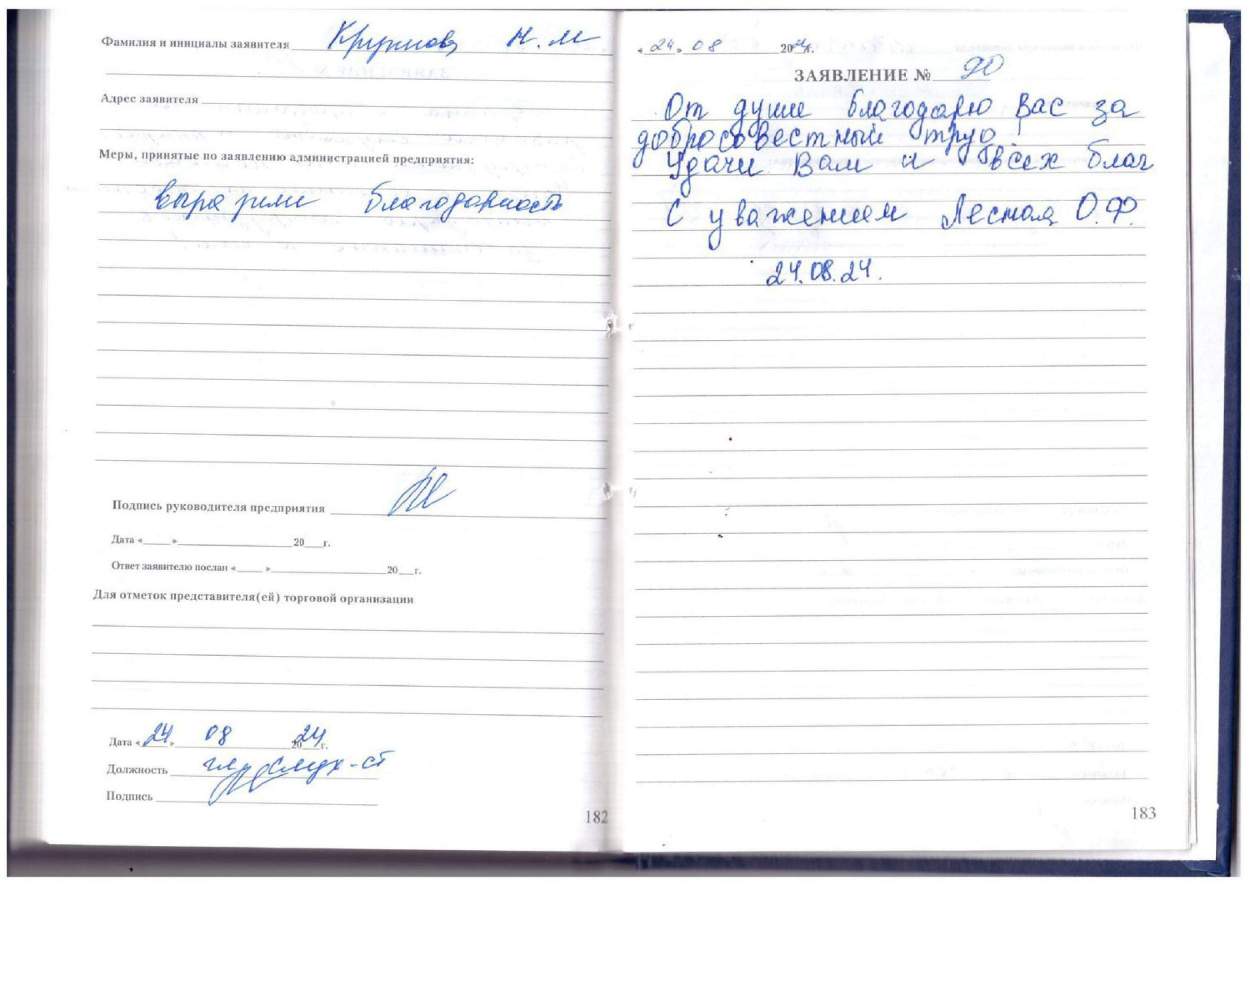 Фамилия и инициалы заявителя Н.М
Адрес заявителя
Меры, принятые по заявлению администрацией предприятия:
выразили благодарность
Подпись руководителя предприятия
Дата «____» ____ 20___г.
Ответ заявителю послан «____ » ____ 20___г.
Для отметок представителя(ей) торговой организации
Дата « 24 » 08 2024 г.
Должность
Подпись
182
« 24 » 08 2024г.
ЗАЯВЛЕНИЕ № 90
От души благодарю Вас за
добросовестный труд!
Удачи Вам и всех благ
С уважением Лесная О.Ф.
24.08.24.
183